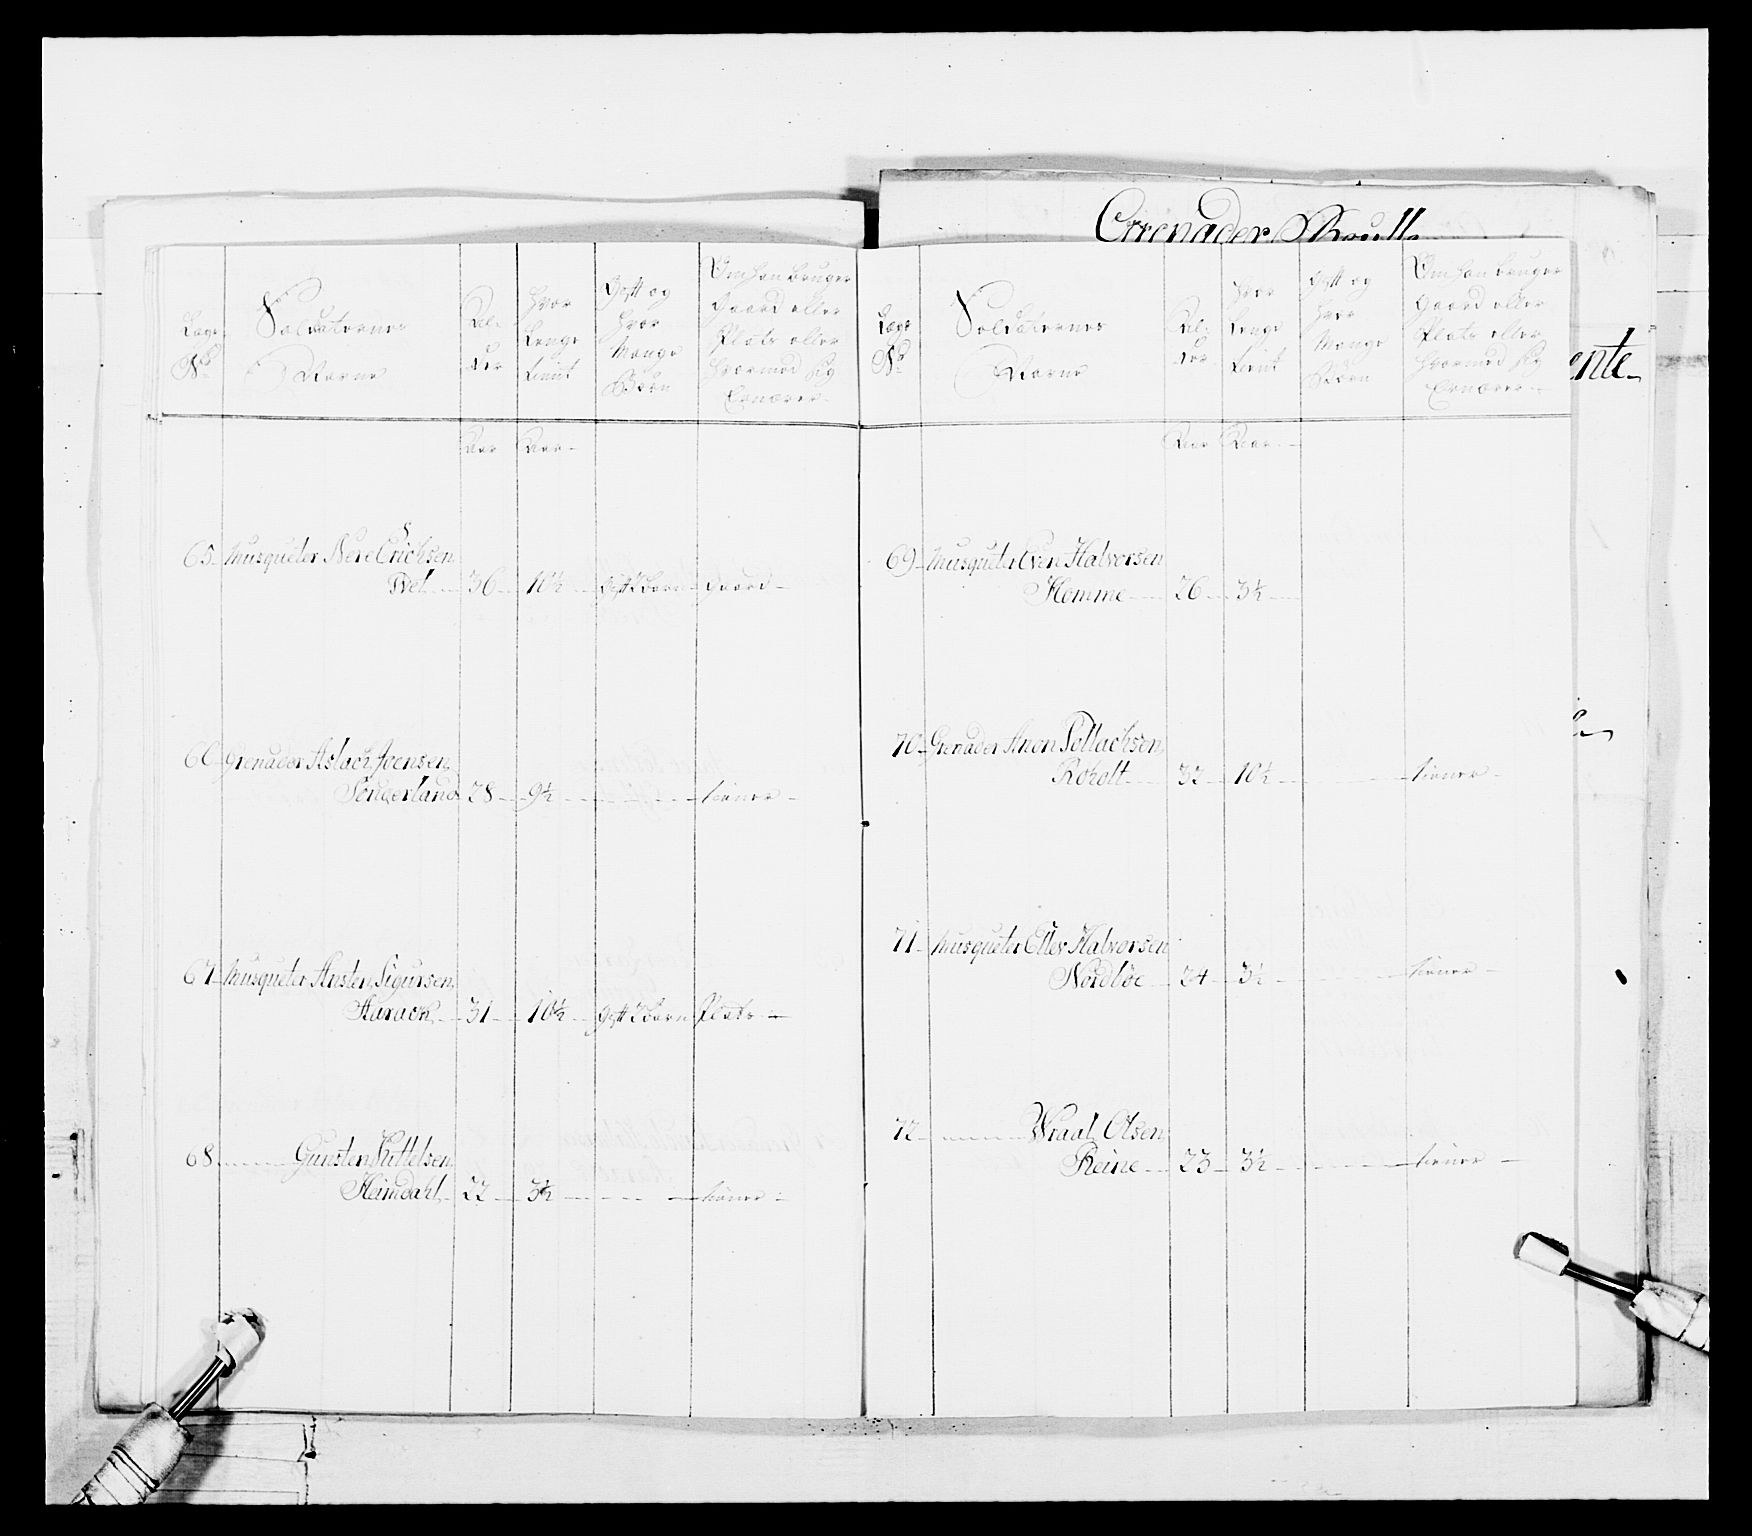 Grenader
ente
Lægs
No
Soldaternes
Navne
Al-
der
Hvor
Længe
tient
Gift og
Hvor
Mange
Børn
Om Han bruger
Gaard eller
Plats eller
Hvormed sig
Ernærer
Aar Aar
65 Musqueter Nere Erichsen
Tvet 36 10½ Gift 2 Børn Gaard
66 Grenader Aslach Joensen
Sönderland 28 9½ tiener
67 Musqueter Ansten Sigursen
Haraok 31 10½ Gift 2 Børn Plads
68 Gunsten Kittelsen
Heimdahl 22 3½ tiener
Lægs
No
Soldaternes
Navne
Al-
der
Hvor
Længe
tient
Gift og
Hvor
Mange
Børn
Om Han bruger
Gaard eller
Plats eller
Hvormed sig
Ernærer
Aar Aar
69 Musqueter Even Halvorsen
Homme 26 3½
70 Grenader Anon Sollachsen
Roholt 32 10½ tiener
71 Musqueter Ellev Halvorsen
Nordböe 24 3½ tiener
72 Wraal Olsen
Reine 23 3½ tiener